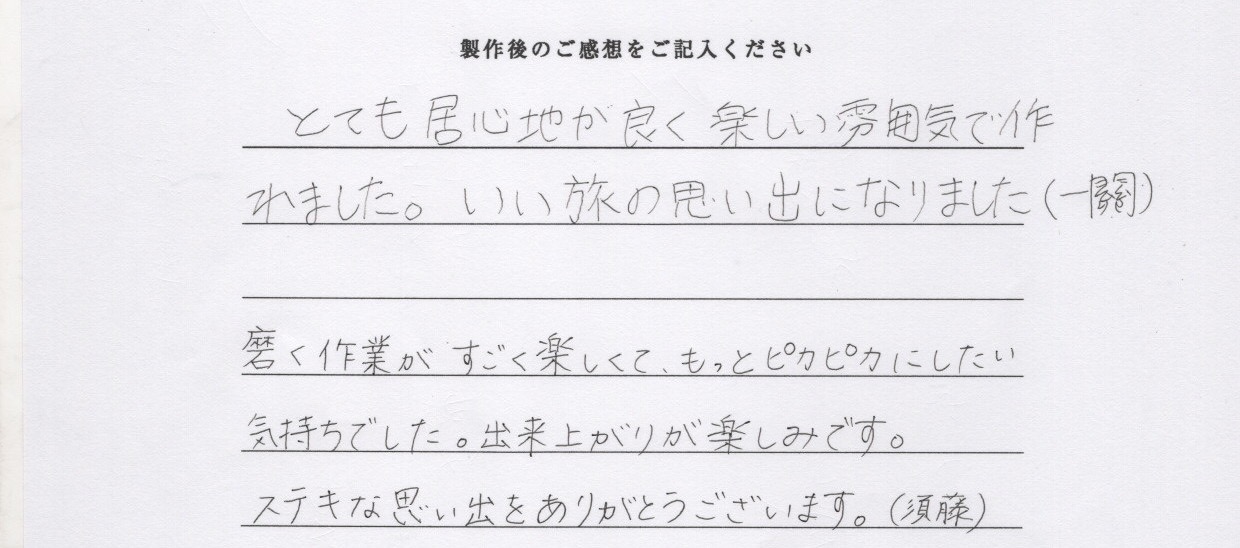 製作後のご感想をご記入ください
とても居心地が良く楽しい雰囲気で作
れました。いい旅の思い出になりました(一關)
磨く作業がすごく楽しくて、もっとピカピカにしたい
気持ちでした。出来上がりが楽しみです。
ステキな思い出をありがとうございます。(須藤)